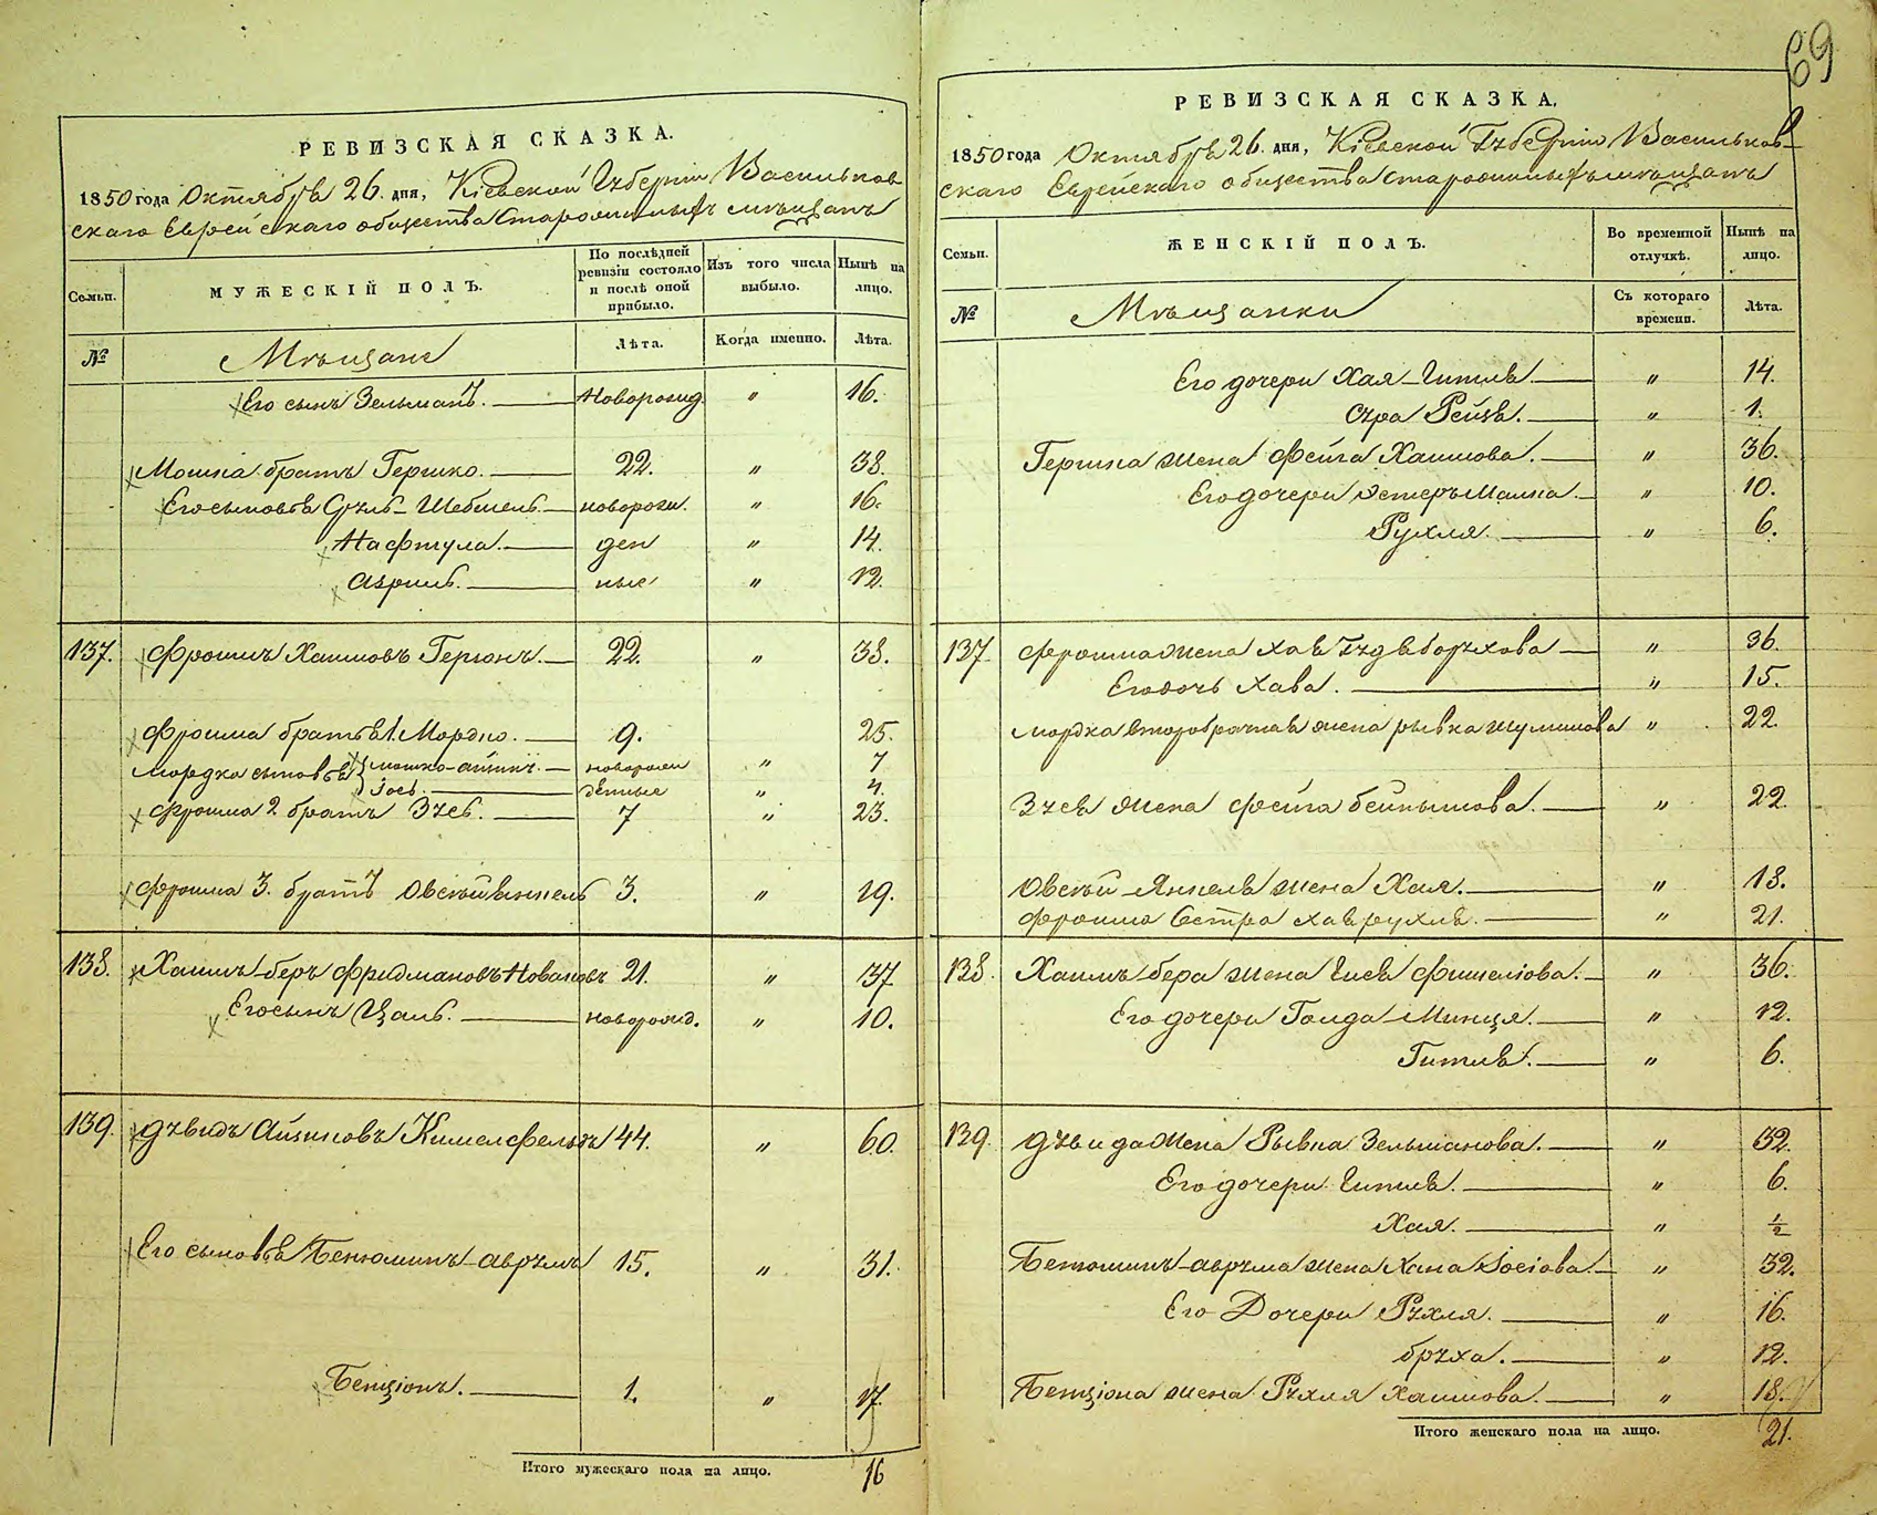 69
РЕВИЗСКАЯ СКАЗКА.
1850 года Октября 26. дня, Кіевской Губерніи Васильков-
скаго Еврейскаго общества Старожилыхъ мѣщанъ
Семьи.
МУЖЕСКІЙ ПОЛЪ.
По послѣдней ревизіи состояло и послѣ оной прибыло.
Изъ того числа выбыло.
Нынѣ на лицо.
№
Мѣщане
Лѣта.
Когда именно.
Лѣта.
Его сынъ Зельманъ. новорожд. " 16.
Мошка братъ Гершко. 22. " 38.
Его сыновья Сруль-Шебшель новорож. " 16.
Нафтула. ден " 14.
Азриль. ные " 12.
137. Фроимъ Хаимовъ Гершонъ. 22. " 38.
Фроима братья 1. Мордко. 9. 25.
Мордка сыновья Мошко-Айзикъ. новорож " 7
Іось. денные " 4.
Фроима 2 братъ Зусь. 7 " 23.
Фроима 3. братъ Овсѣй Янкель 3. " 19.
138. Хаимъ-Беръ Фридмановъ 21. " 37.
Его сынъ Цаль. новорожд. " 10.
139. Дувидъ Айзиковъ Кимелфельдъ 44. " 60.
Его сыновья Бенюминъ-Аврумъ 15. " 31.
Бенціонъ. 1. " 17.
Итого мужескаго пола на лицо. 16
РЕВИЗСКАЯ СКАЗКА.
1850 года Октября 26. дня, Кіевской Губерніи Васильков-
скаго Еврейскаго общества Старожилыхъ мѣщанъ
Семьи.
ЖЕНСКІЙ ПОЛЪ.
Во временной отлучкѣ.
Нынѣ на лицо.
№
Мѣщанки
Съ котораго времени.
Лѣта.
Его дочери Хая-Гитля " 14.
Сура Рейзя. " 1.
Гершка жена Фейга Хаимова. " 36.
Его дочери Эстеръ Малка. " 10.
Рухля. " 6.
137 Фроима жена Хая Гудя Борухова " 36.
Его дочь Хава. " 15.
Мордка второбрачная жена Рывка Шулимова " 22.
Зуся жена Фейга Бейнышова. " 22.
Овсѣй-Янкеля жена Хая. " 18.
Фроима Сестра Хая Рухля. " 21.
138. Хаимъ-Бера жена Фишеліова. " 36.
Его дочери Голда-Минця. " 12.
Гитля. " 6.
139. Дувида жена Рывка Зельманова. " 32.
Его дочери Гитля. " 6.
Хая. " ½
Бенюминъ-Аврума жена Хана Іосіова. " 32.
Его Дочери Рухля. " 16.
Бруха. " 12.
Бенціона жена Рухля Хаимова. " 18.
Итого женскаго пола на лицо. 21.